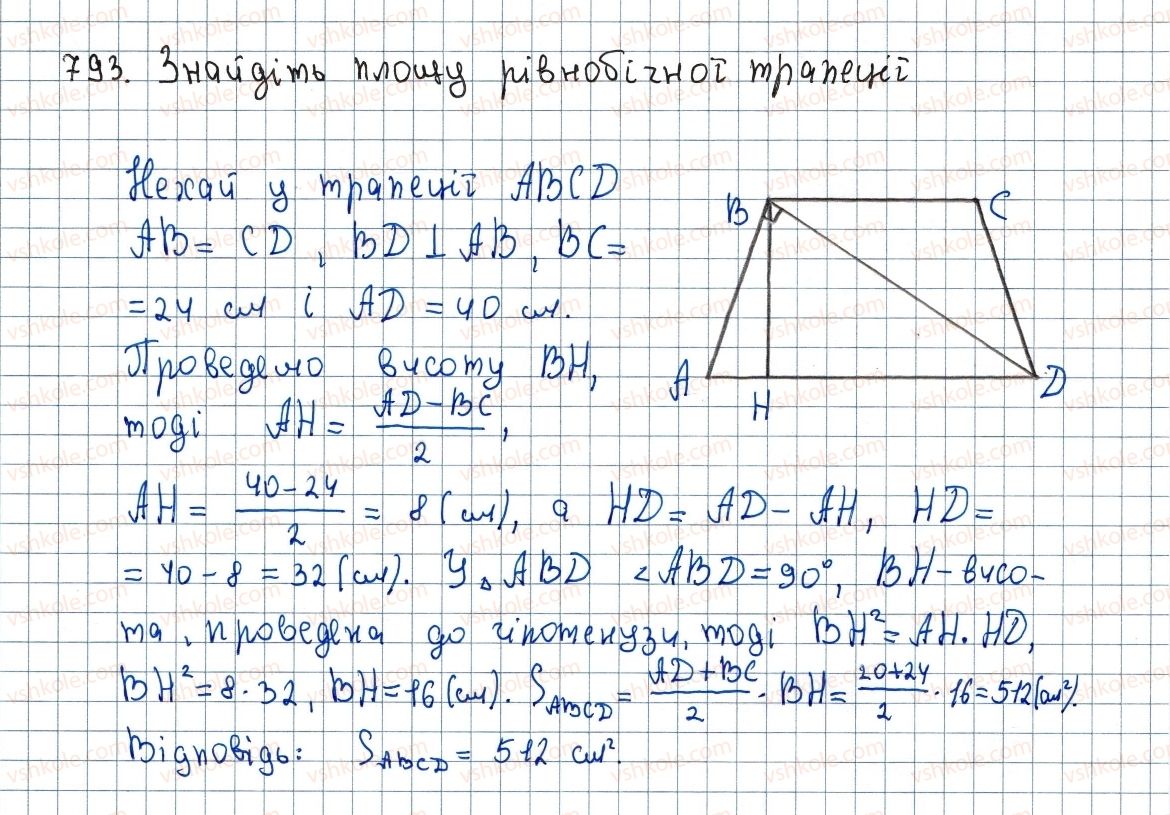 793. Знайдіть площу рівнобічної трапеції
Нехай у трапеції ABCD
AB = CD, BD ⊥ AB, BC =
= 24 см і AD = 40 см.
Проведемо висоту BH,
тоді AH = (AD – BC)/2,
AH = (40 – 24)/2 = 8 (см), а HD = AD – AH, HD =
= 40 – 8 = 32 (см). У △ABD ∠ABD = 90°, BH – висо-
та, проведена до гіпотенузи, тоді BH² = AH · HD,
BH² = 8 · 32, BH = 16 (см). S_ABCD = (AD + BC)/2 · BH = (20 + 24)/2 · 16 = 512 (см²).
Відповідь: S_ABCD = 512 см².
B
C
A
H
D
vshkole.com